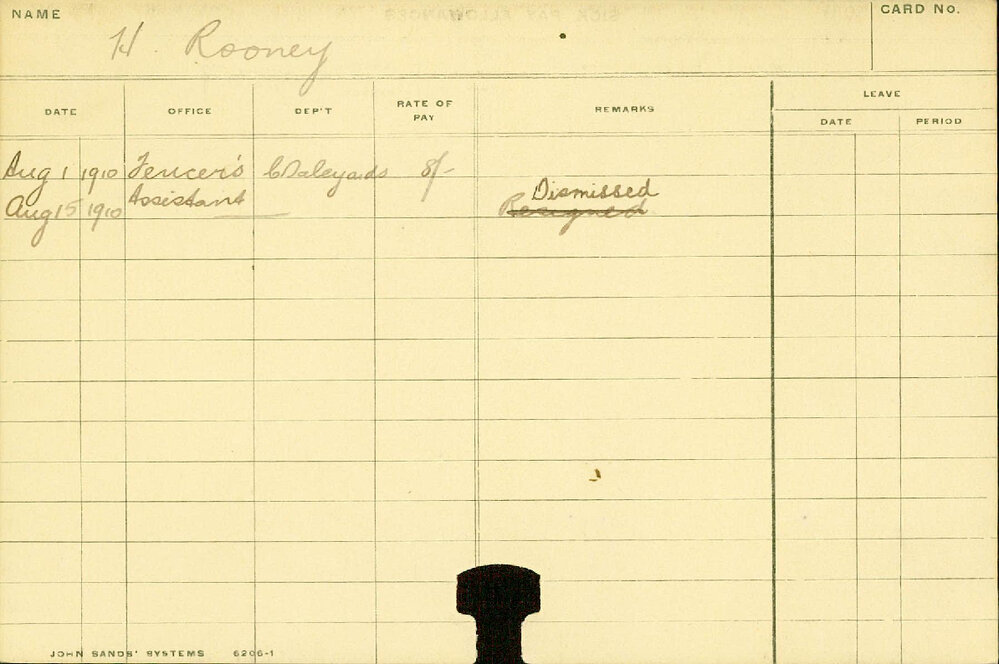 NAME
CARD No.
H. Rooney
DATE OFFICE DEP'T RATE OF PAY REMARKS LEAVE
DATE PERIOD
Aug 1 1910 Fencer's C Saleyards 8/-
Assistant Dismissed
Aug 15 1910 Resigned
JOHN SANDS' SYSTEMS 6206-1